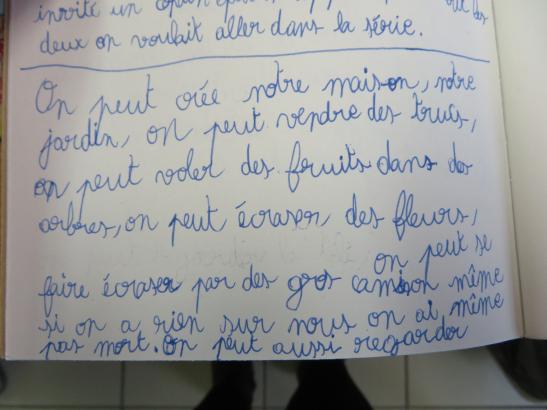 invité un
deux on voulait aller dans la série.
On peut crée notre maison, notre
jardin, on peut vendre des trucs,
on peut voler des fruits dans des
arbres, on peut écraser des fleurs,
on peut se
faire écraser par des gros camison même
si on a rien sur nous on ai même
pas mort. On peut aussi regarder